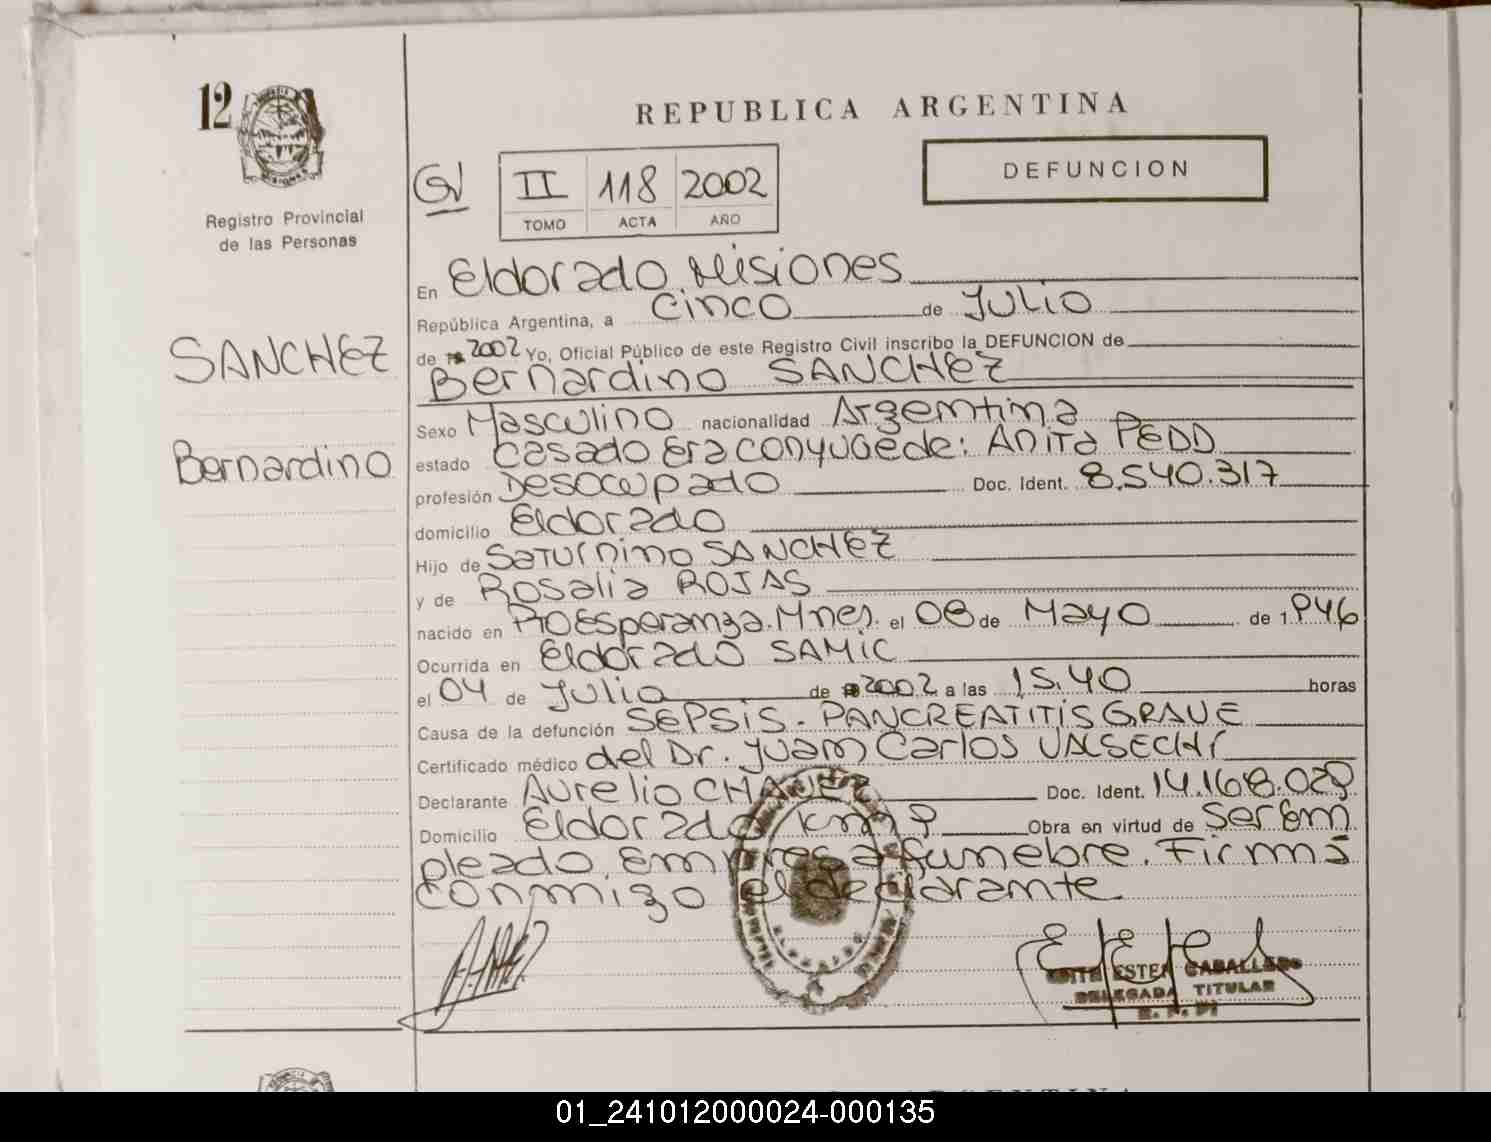 12
Registro Provincial
de las Personas
SANCHEZ
Bernardino
REPUBLICA ARGENTINA
DEFUNCION
GV II 118 2002
TOMO ACTA AÑO
En Eldorado, Misiones
República Argentina, a cinco de Julio
de 2002 Yo, Oficial Público de este Registro Civil inscribo la DEFUNCION de
Bernardino SANCHEZ
Sexo Masculino nacionalidad Argentina
estado casado Era conyuge de: Anita PEDD
profesión Desocupado Doc. Ident. 8.540.317
domicilio Eldorado
Hijo de Saturnino SANCHEZ
y de Rosalia ROJAS
nacido en Pto Esperanza. Mnes. el 08 de Mayo de 1946
Ocurrida en Eldorado SAMIC
el 04 de Julio de 2002 a las 15.40 horas
Causa de la defunción SEPSIS - PANCREATITIS GRAVE
Certificado médico del Dr. Juan Carlos VALSECHI
Declarante Aurelio CHAVEZ Doc. Ident. 14.168.029
Domicilio Eldorado km 9 Obra en virtud de Ser Em
pleado Empresa funebre. Firma
conmigo el declarante
EDITH ESTER CABALLERO
DELEGADA TITULAR
01_241012000024-000135